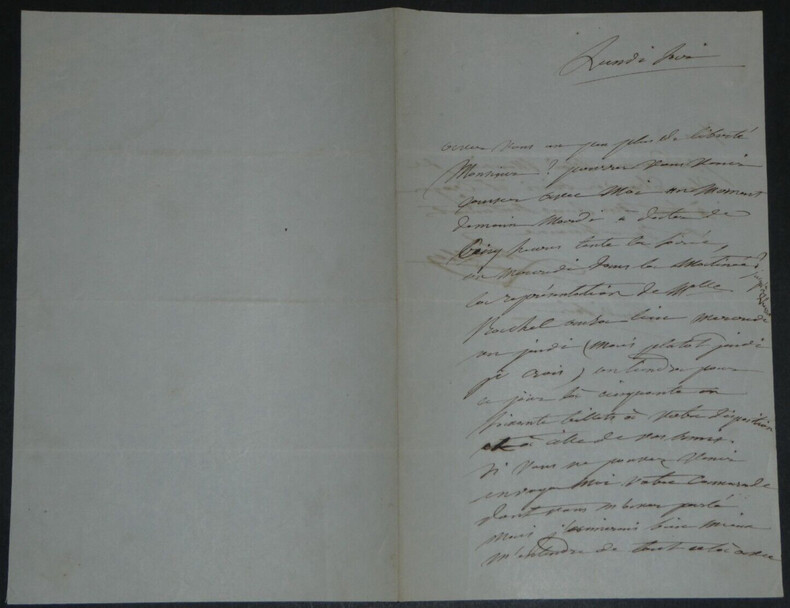 Lundi soir
avez vous un peu plus de liberté
Monsieur? pouvez vous venir
causer avec moi un moment
demain Mardi à dater de
Cinq heures toute la soirée,
ou mercredi dans la Matinée?
la représentation de Melle
Rachel aura lieu mercredi
ou jeudi (mais plutot jeudi
je crois) on tiendra pour
ce jour là cinquante ou
soixante billets à votre disposition
et à celle de vos amis.
Si vous ne pouvez venir
envoyez moi votre Camarade
dont vous m'avez parlé
mais j'aimerais bien mieux
m'entendre de tout cela avec